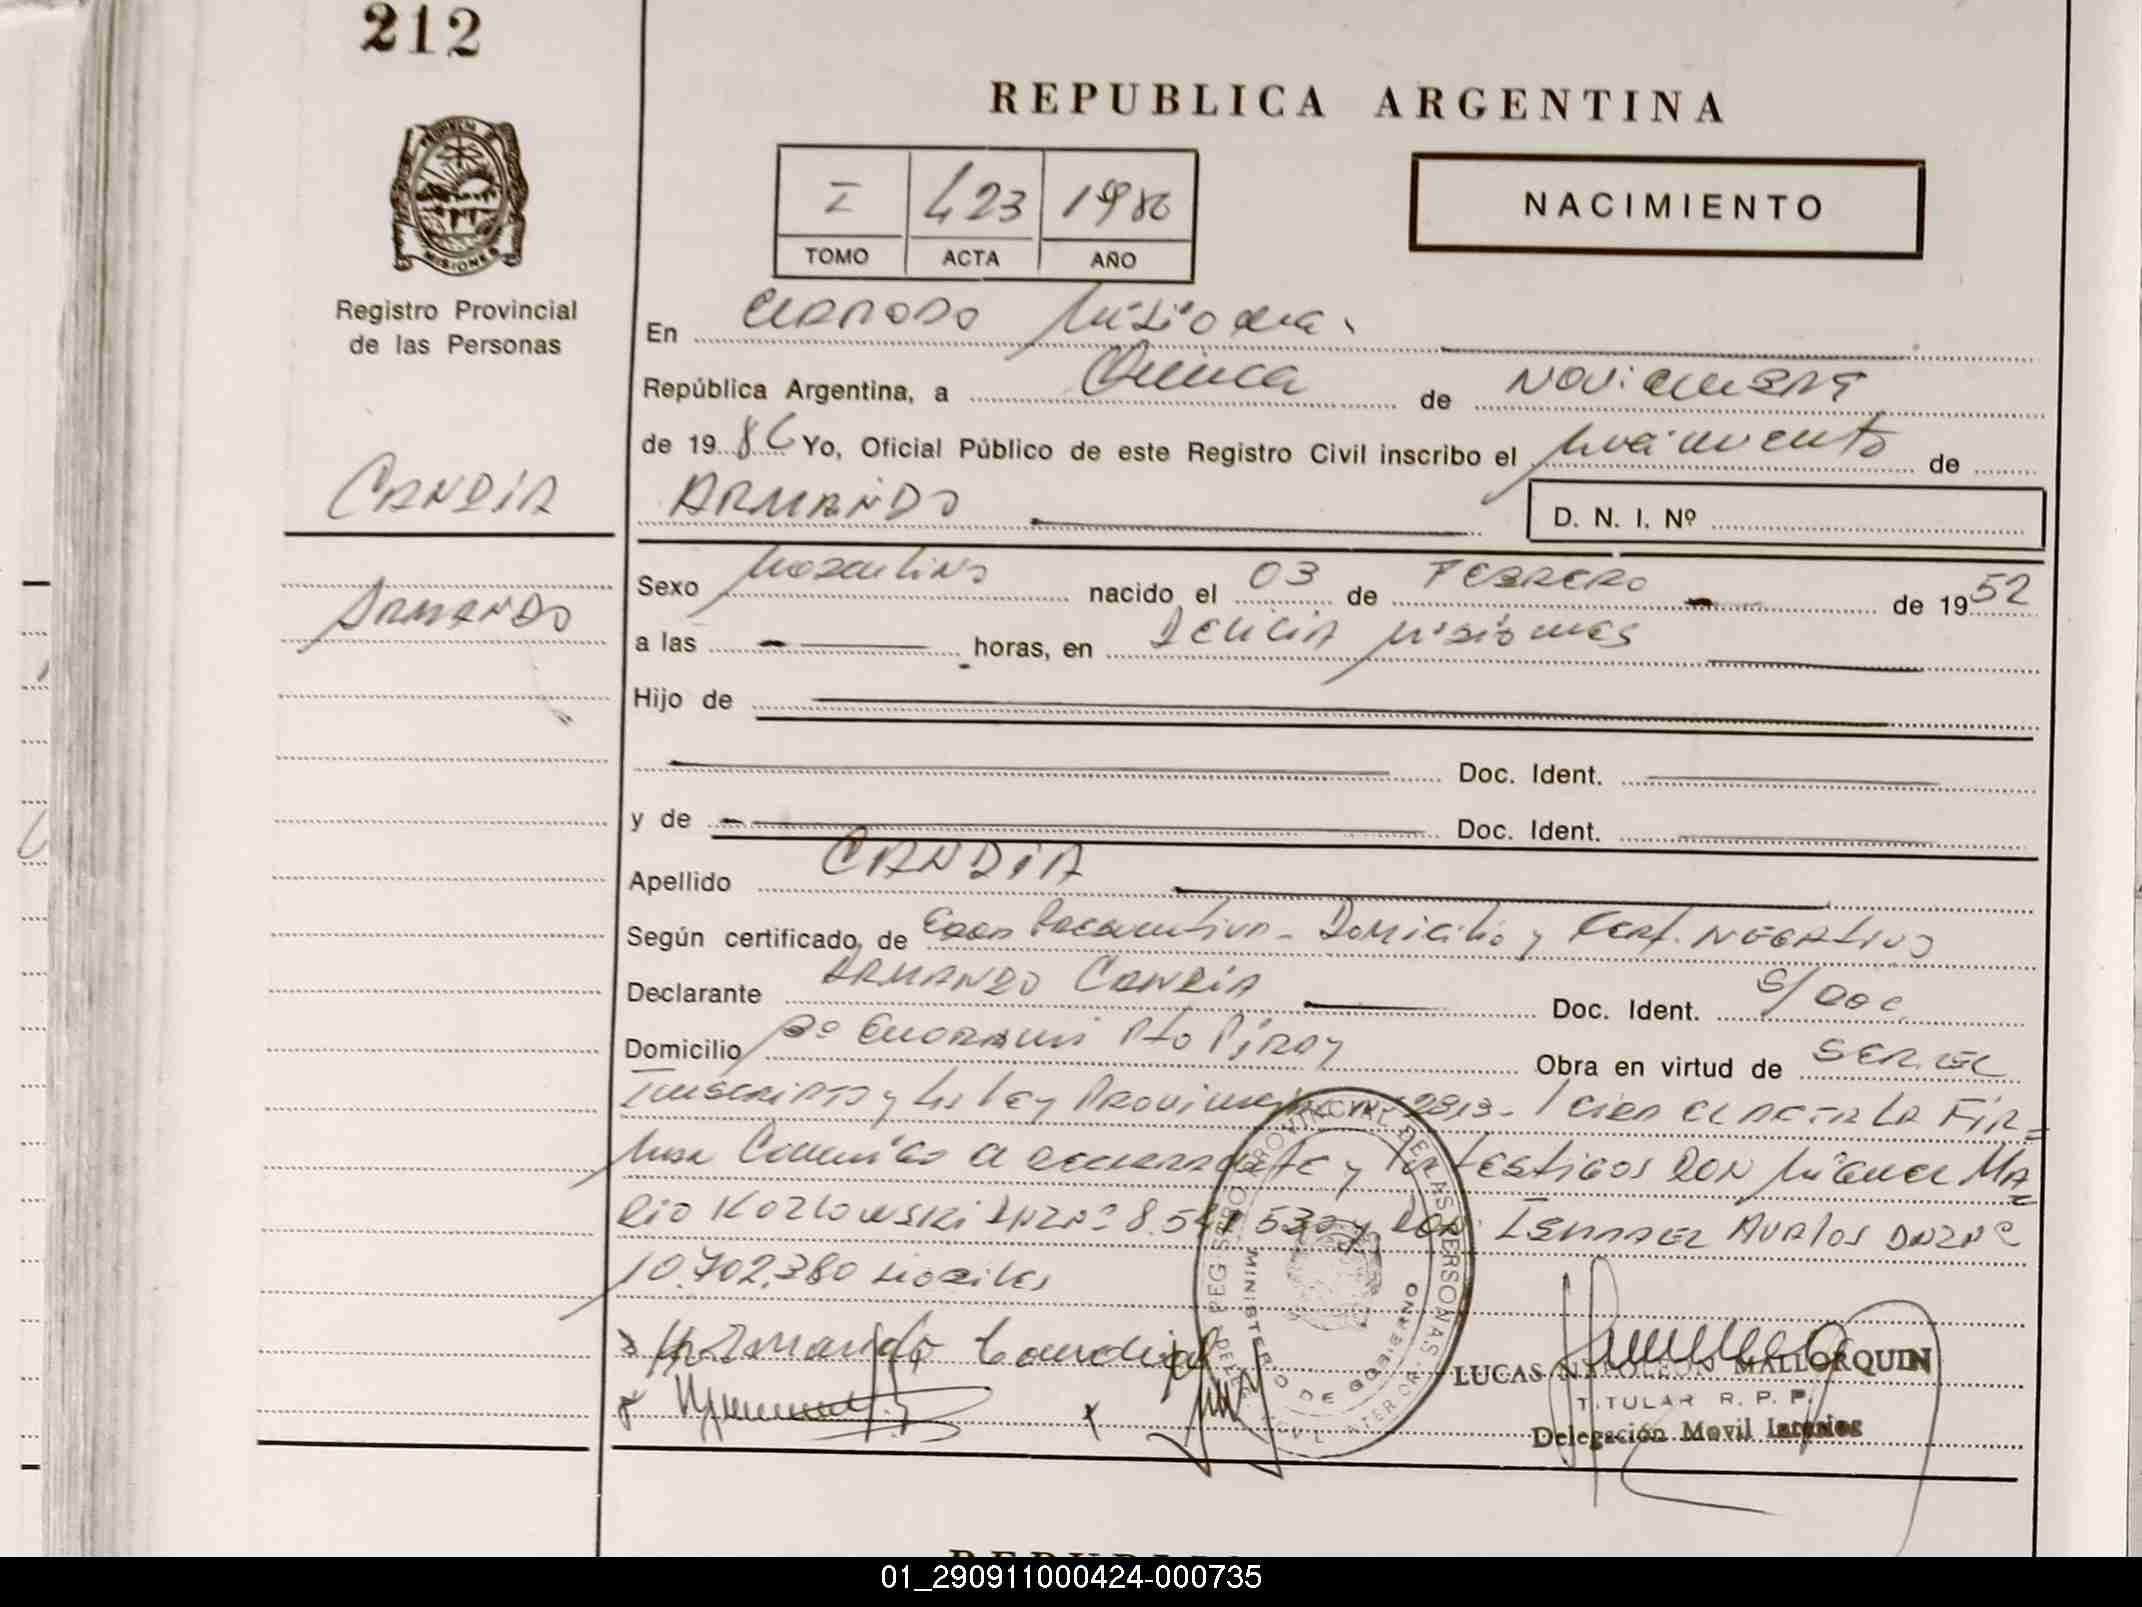 212
REPUBLICA ARGENTINA
I 423 1986
TOMO ACTA AÑO
NACIMIENTO
MISIONES
Registro Provincial
de las Personas
En ELDORADO Misiones
República Argentina, a Cinco de NOViEMBRE
de 1986 Yo, Oficial Público de este Registro Civil inscribo el Nacimiento de
CANDIA
ARMANDO
D. N. I. Nº
ARMANDO
Sexo Masculino nacido el 03 de FEBRERO de 1952
a las horas, en DELICIA Misiones
Hijo de
Doc. Ident.
y de Doc. Ident.
Apellido CANDIA
Según certificado de Domicilio y Cert. NEGATIVO
Declarante ARMANDO CANDIA Doc. Ident. S/DOC
Domicilio Pto Piray Obra en virtud de SER EL
INSCRIPTO y Ley Provincial 2813. LEIDA EL ACTA LA FIR=
MAN Conmigo El DECLARANTE y los TESTIGOS DON MIGUEL MA=
RIO KOZLOWSKI DNI Nº 8.541.530 y DON ISMAEL AVALOS DNI Nº
10.702.380
Armando Candia
REGISTRO PROVINCIAL DE LAS PERSONAS
MINISTERIO DE GOBIERNO
LUCAS NAPOLEON MALLORQUIN
TITULAR R. P. P.
Delegación Movil Interior
01_290911000424-000735